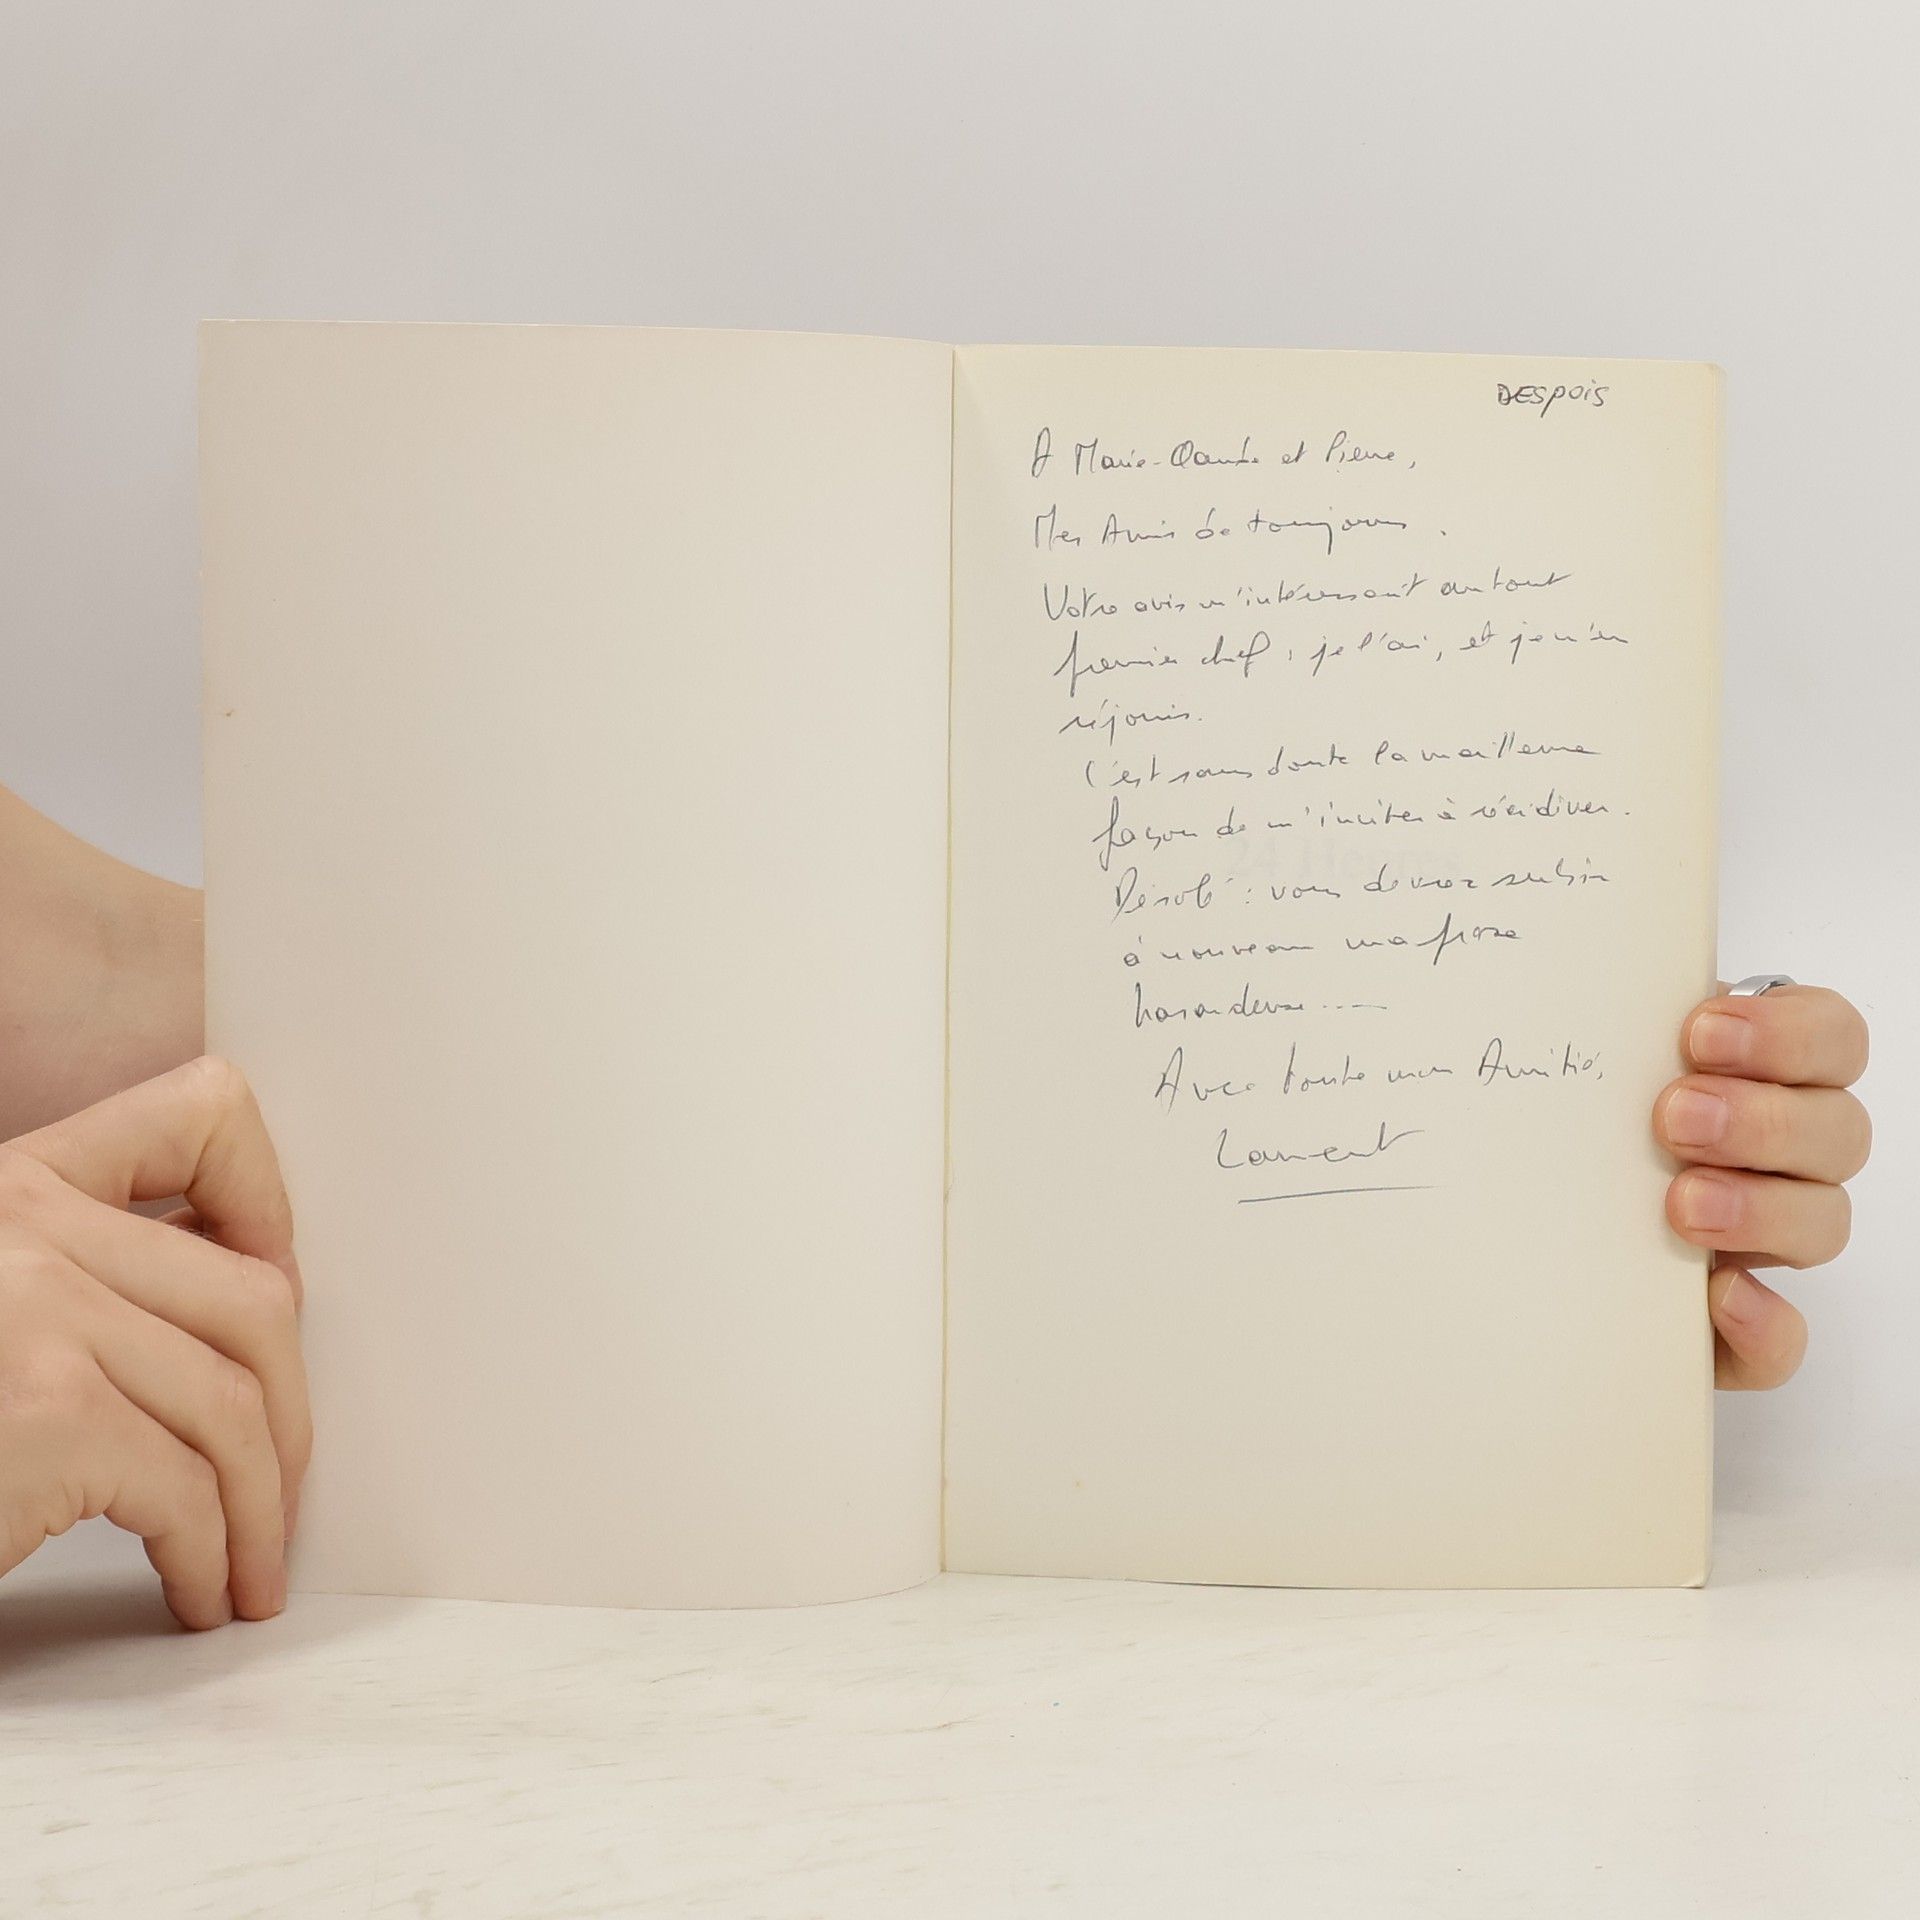 DESPOIS
A Marie-Claude et Pierre,
Mes Amis de toujours.
Votre avis m'intéressait au tout
premier chef : je l'ai, et je m'en
réjouis.
C'est sans doute la meilleure
façon de m'inciter à récidiver.
24 Heures
Désolé : vous devrez subir
à nouveau ma prose
hasardeuse ....
Avec toute mon Amitié,
Laurent